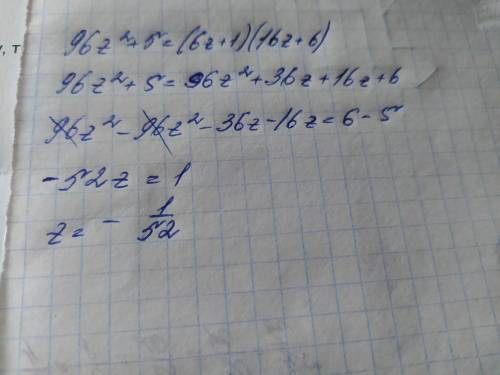 96z²+5=(6z+1)(16z+6)
96z²+5=96z²+36z+16z+6
96z²-96z²-36z-16z=6-5
-52z=1
z=-1/52